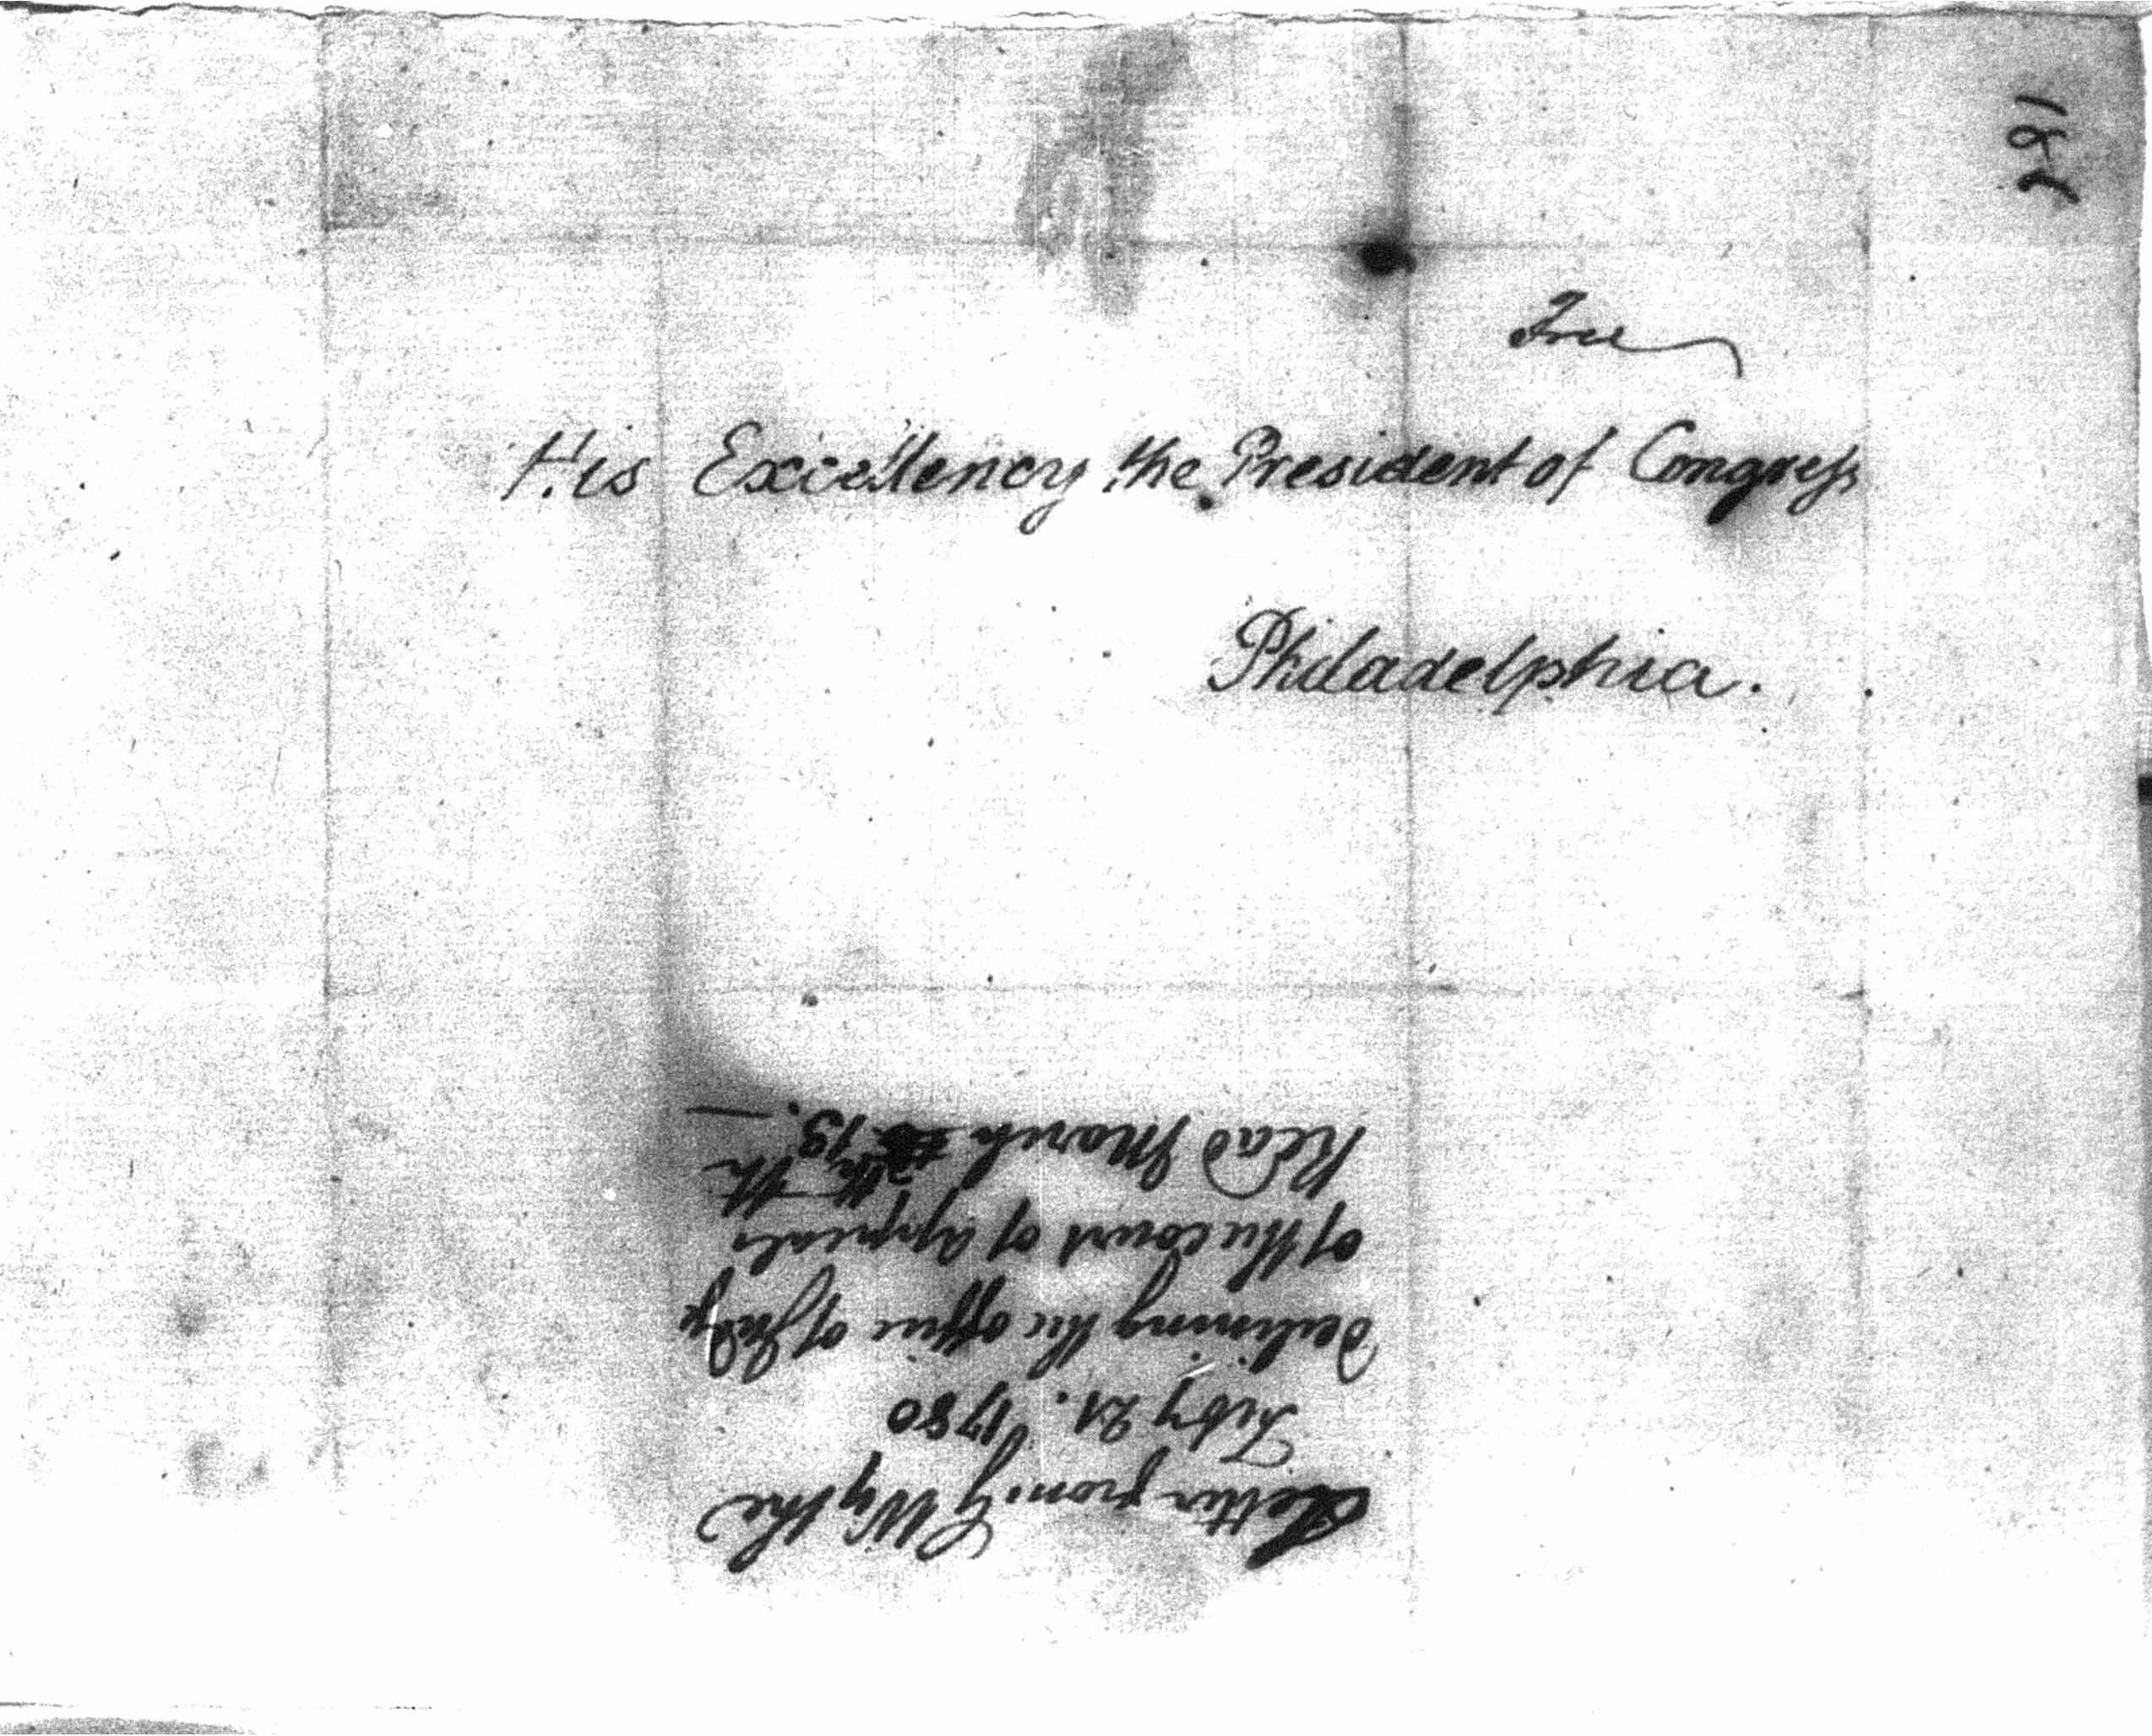 185
Free
His Excellency the President of Congress
Philadelphia.
Letter from G Wythe
Feby 21. 1780
declining the office of Judge
of the court of appeals
Read March 13.—